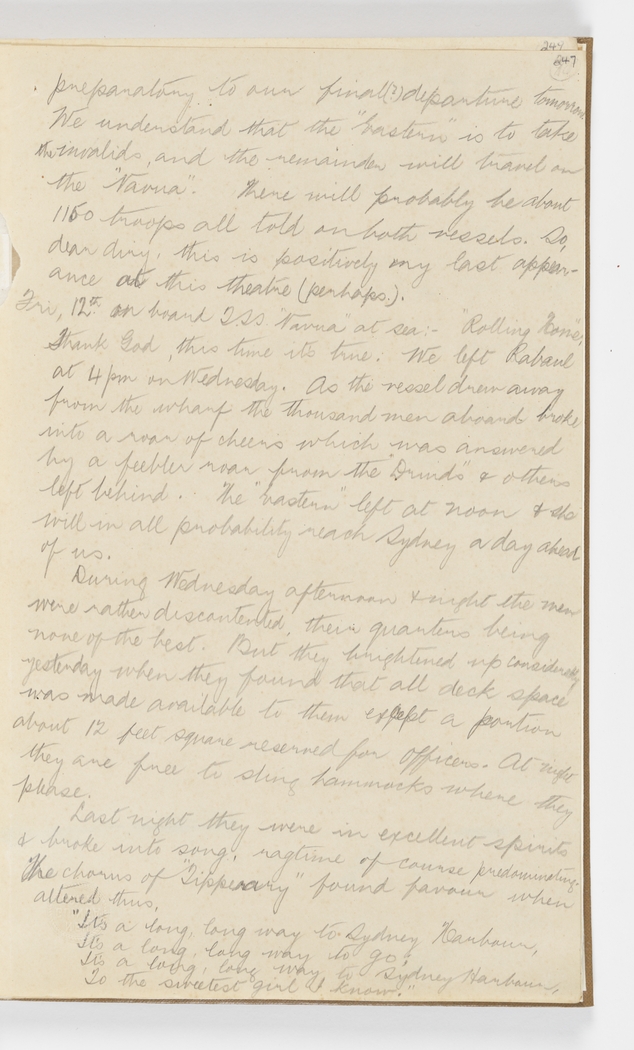 249
247
preparatory to our final(?) departure tomorrow
We understand that the "Eastern" is to take
the invalids, and the remainder will travel on
the "Navua". There will probably be about
1150 troops all told on both vessels. So,
dear diry, this is positively my last appear-
ance at this theatre (perhaps).
Fri, 12th. On board T.S.S. "Navua" at sea:- "Rolling Home",
Thank God, this time it's true. We left Rabaul
at 4 pm on Wednesday. As the vessel drew away
from the wharf the thousand men aboard broke
into a roar of cheers which was answered
by a feebler roar from the "Druids" & others
left behind. The "Eastern" left at noon & she
will in all probability reach Sydney a day ahead
of us.
During Wednesday afternoon & night the men
were rather discontented, their quarters being
none of the best. But they brightened up considerably
yesterday when they found that all deck space
was made available to them except a portion
about 12 feet square reserved for officers. At night
they are free to sling hammocks where they
please.
Last night they were in excellent spirits
& broke into song, ragtime of course predominating.
The chorus of "Tipperary" found favour when
altered thus,
"It's a long, long way to Sydney Harbour,
It's a long, long way to go;
It's a long, long way to Sydney Harbour,
To the sweetest girl I know."